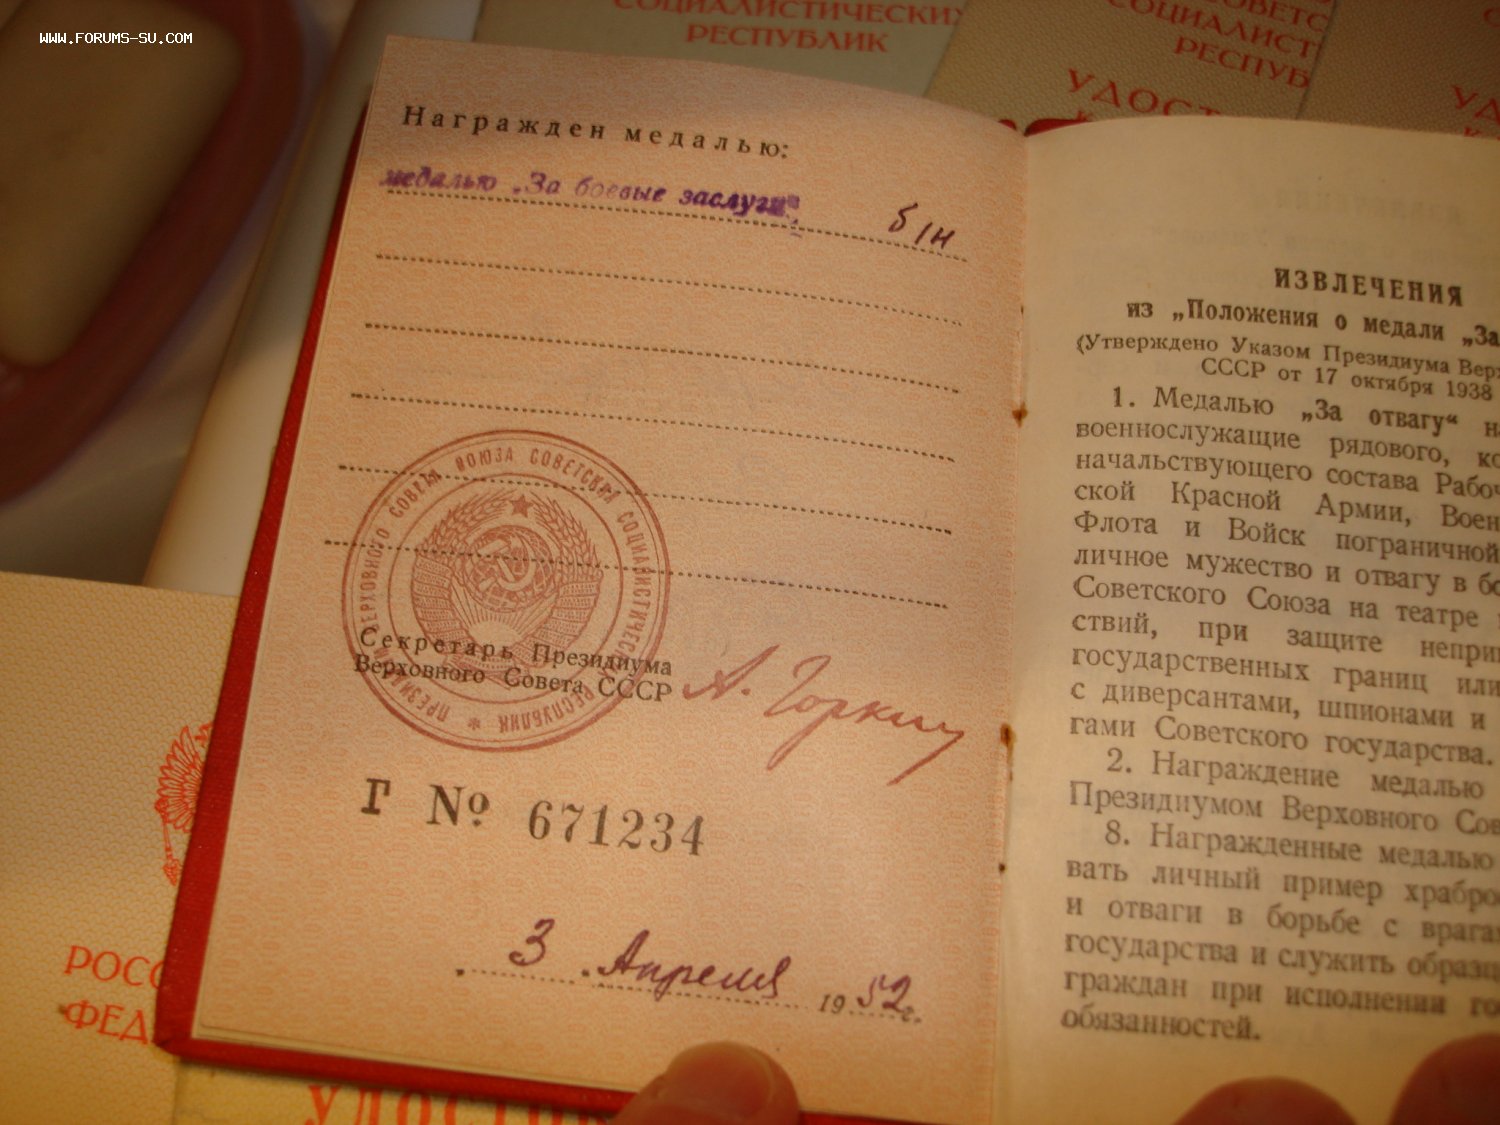 WWW.FORUMS-SU.COM
СОЦИАЛИСТИЧЕСКИХ
РЕСПУБЛИК
СОЦИАЛИСТ
РЕСПУБ
УДОСТ
УД
Награжден медалью:
медалью „За боевые заслуги"
б/н
СОЮЗА СОВЕТСКИХ СОЦИАЛИСТИЧЕСКИХ РЕСПУБЛИК * ПРЕЗИДИУМ ВЕРХОВНОГО СОВЕТА
Секретарь Президиума
Верховного Совета СССР
А. Горкин
Г № 671234
3 Апреля 1952 г.
ИЗВЛЕЧЕНИЯ
из „Положения о медали „За
(Утверждено Указом Президиума Верх
СССР от 17 октября 1938
1. Медалью „За отвагу“ на
военнослужащие рядового, ко
начальствующего состава Рабоч
ской Красной Армии, Воен
Флота и Войск пограничной
личное мужество и отвагу в бо
Советского Союза на театре
ствий, при защите непри
государственных границ или
с диверсантами, шпионами и
гами Советского государства.
2. Награждение медалью
Президиумом Верховного Сов
8. Награжденные медалью
вать личный пример храбро
и отваги в борьбе с врага
государства и служить образц
граждан при исполнении го
обязанностей.
РОСС
ФЕД
УДОСТО